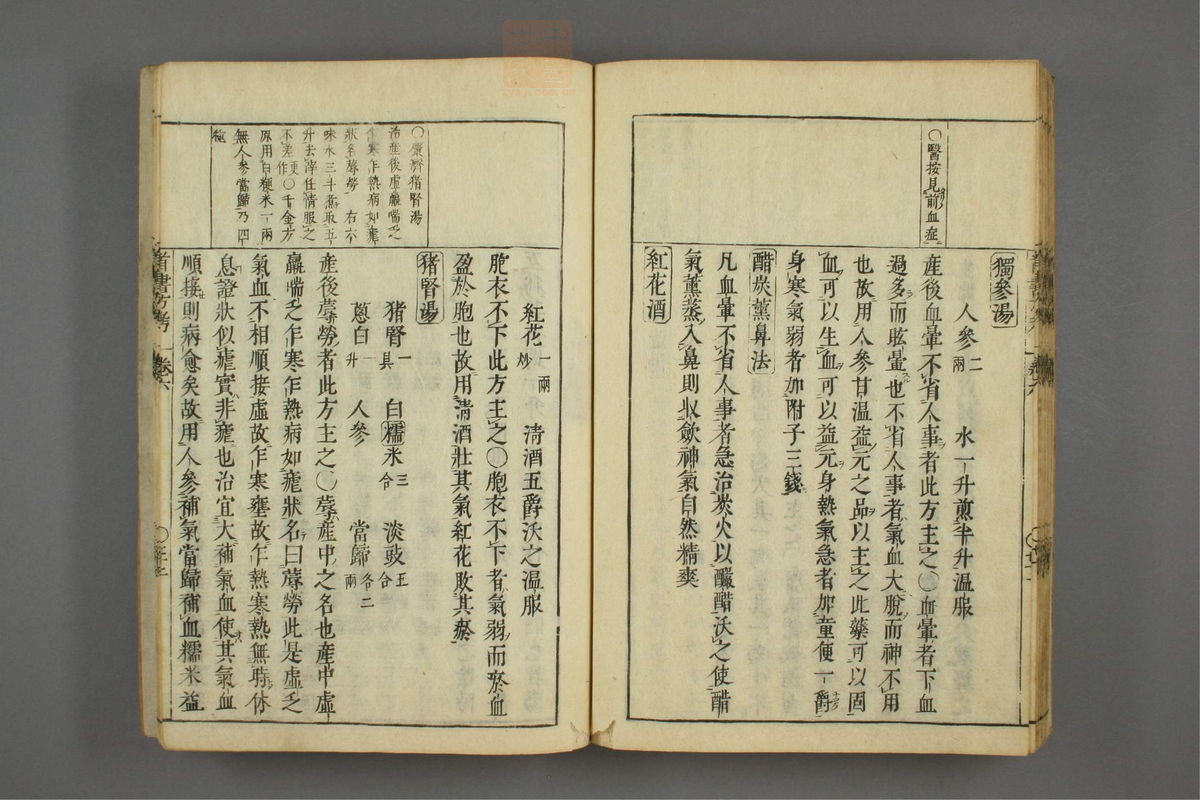 〇醫按見前血症
獨參湯
人參二兩 水一升煎半升温服
産後血暈不省人事者此方主之〇血暈者下血
過多而眩暈也不省人事者氣血大脫而神不用
也故用人參甘温益元之品以主之此藥可以固
血可以生血可以益元身熱氣急者加童便一爵
身寒氣弱者加附子三錢
醋炭薰鼻法
凡血暈不省人事者急治炭火以釅醋沃之使醋
氣薰蒸入鼻則收歛神氣自然精爽
紅花酒
〇廣濟猪腎湯
治産後虛羸喘乏
乍寒乍熱病如瘧
狀名蓐勞 右六
味水三斗煮取五
升去滓任情服之
不差更作〇千金方
原用白粳米一兩
無人參當歸乃四
種
紅花一兩炒 淸酒五爵沃之温服
胞衣不下此方主之〇胞衣不下者氣弱而瘀血
盈於胞也故用淸酒壯其氣紅花敗其瘀
猪腎湯
猪腎一具 白糯米三合 淡豉五合
蔥白一升 人參 當歸各二兩
産後蓐勞者此方主之〇蓐産中之名也産中虛
羸喘乏乍寒乍熱病如瘧狀名曰蓐勞此是虛乏
氣血不相順接虛故乍寒壅故乍熱寒熱無時休
息證狀似瘧實非瘧也治宜大補氣血使其氣血
順接則病愈矣故用人參補氣當歸補血糯米益
醫書方考 卷六